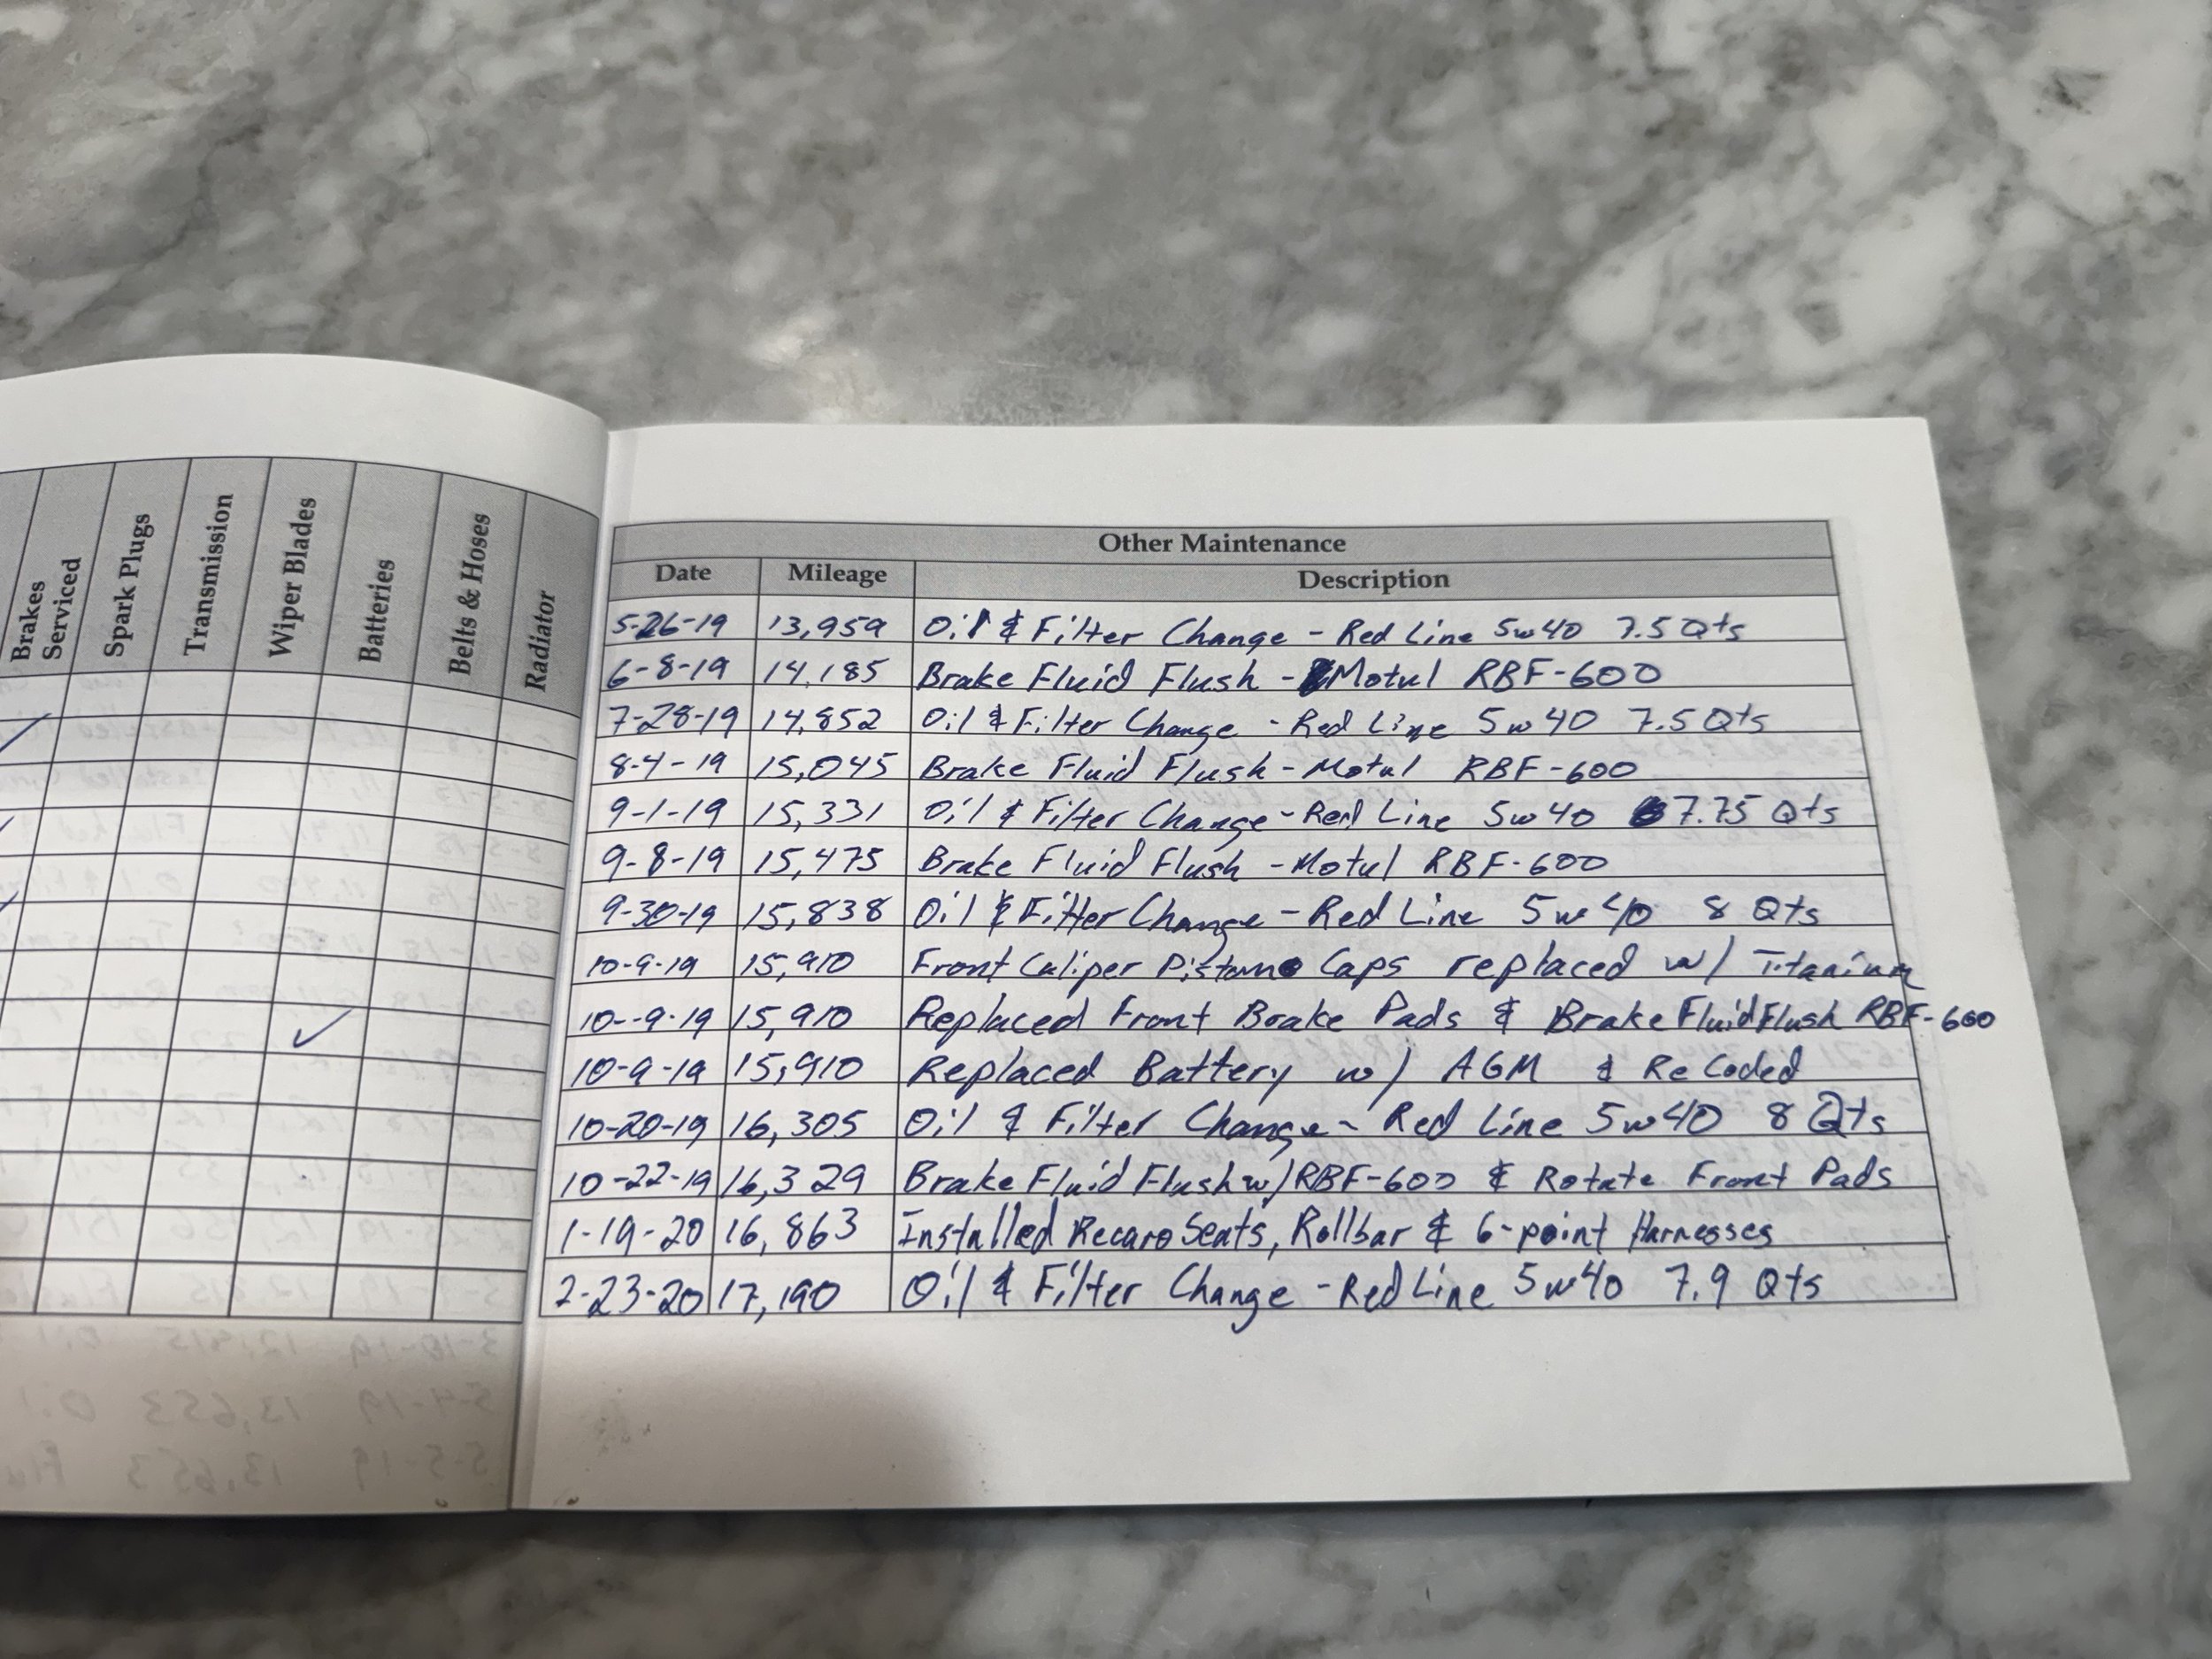 Brakes Serviced
Spark Plugs
Transmission
Wiper Blades
Batteries
Belts & Hoses
Radiator
Other Maintenance
Date Mileage Description
5-26-19 13,959 Oil & Filter Change - Red Line 5w40 7.5 Qts
6-8-19 14,185 Brake Fluid Flush - Motul RBF-600
7-28-19 14,852 Oil & Filter Change - Red Line 5w40 7.5 Qts
8-4-19 15,045 Brake Fluid Flush - Motul RBF-600
9-1-19 15,331 Oil & Filter Change - Red Line 5w40 7.75 Qts
9-8-19 15,475 Brake Fluid Flush - Motul RBF-600
9-30-19 15,838 Oil & Filter Change - Red Line 5w40 8 Qts
10-9-19 15,910 Front Caliper Piston Caps replaced w/ Titanium
10-9-19 15,910 Replaced Front Brake Pads & Brake Fluid Flush RBF-600
10-9-19 15,910 Replaced Battery w/ AGM & ReCoded
10-20-19 16,305 Oil & Filter Change - Red Line 5w40 8 Qts
10-22-19 16,329 Brake Fluid Flush w/ RBF-600 & Rotate Front Pads
1-19-20 16,863 Installed Recaro Seats, Rollbar & 6-point Harnesses
2-23-20 17,190 Oil & Filter Change - Red Line 5w40 7.9 Qts